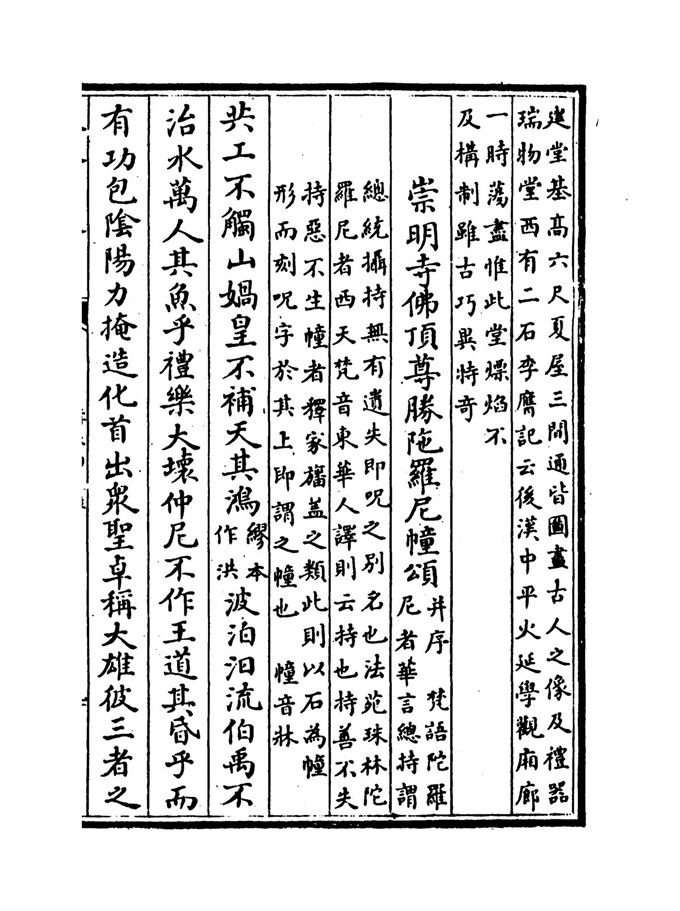 建堂基高六尺夏屋三間通皆圖畫古人之像及禮器
瑞物堂西有二石李膺記云後漢中平火延學觀廂廊
一時蕩盡惟此堂爍焰不
及構制雖古巧異特奇
崇明寺佛頂尊勝陁羅尼幢頌并序
梵語陀羅
尼者華言總持謂
總統攝持無有遺失即呪之别名也法苑珠林陀
羅尼者西天梵音東華人譯則云持也持善不失
持惡不生幢者釋家旛盖之類此則以石為幢
形而刻呪字於其上即謂之幢也 幢音牀
共工不觸山媧皇不補天其鴻繆本作洪波汨汩流伯禹不
治水萬人其魚乎禮樂大壞仲尼不作王道其昏乎而
有功包陰陽力掩造化首出衆聖卓稱大雄彼三者之